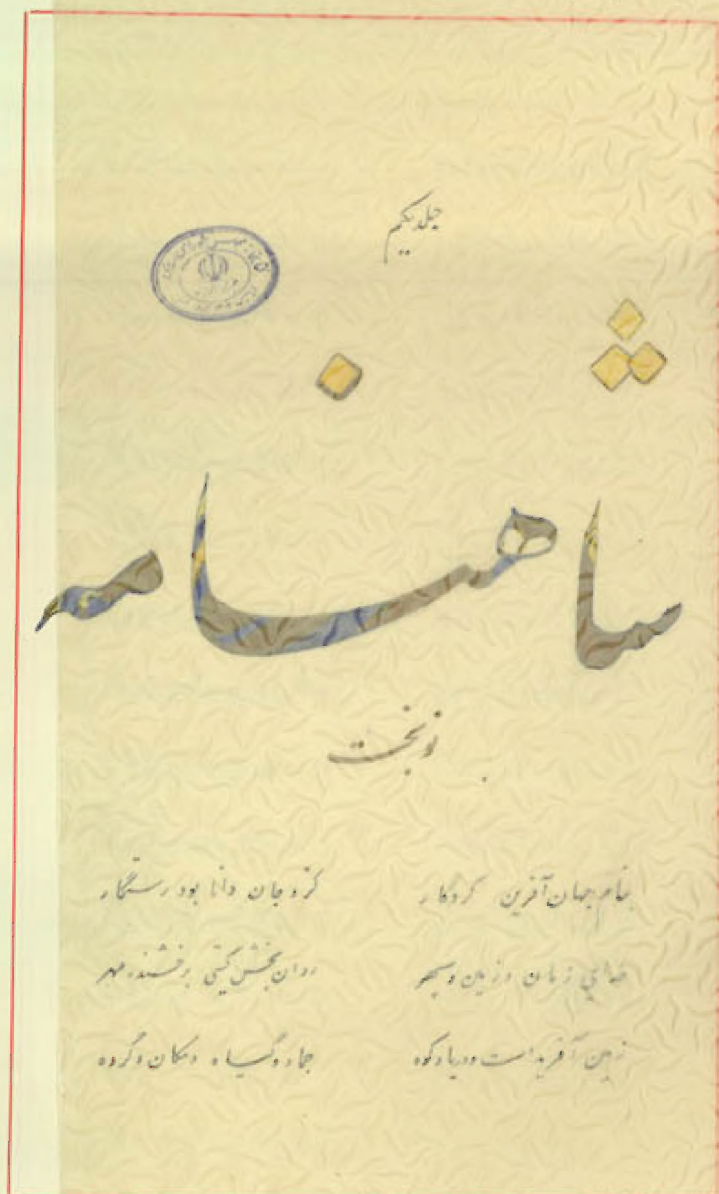 جلد یکم
شاهنامه
نوبخت
بنام جهان آفرین کردگار کزو جان دانا بود رستگار
خدای زمان و زمین و سپهر روان بخش گیتی درخشنده مهر
زمین آفریداست و دریا و کوه جماد و گیاه و مکان و گروه